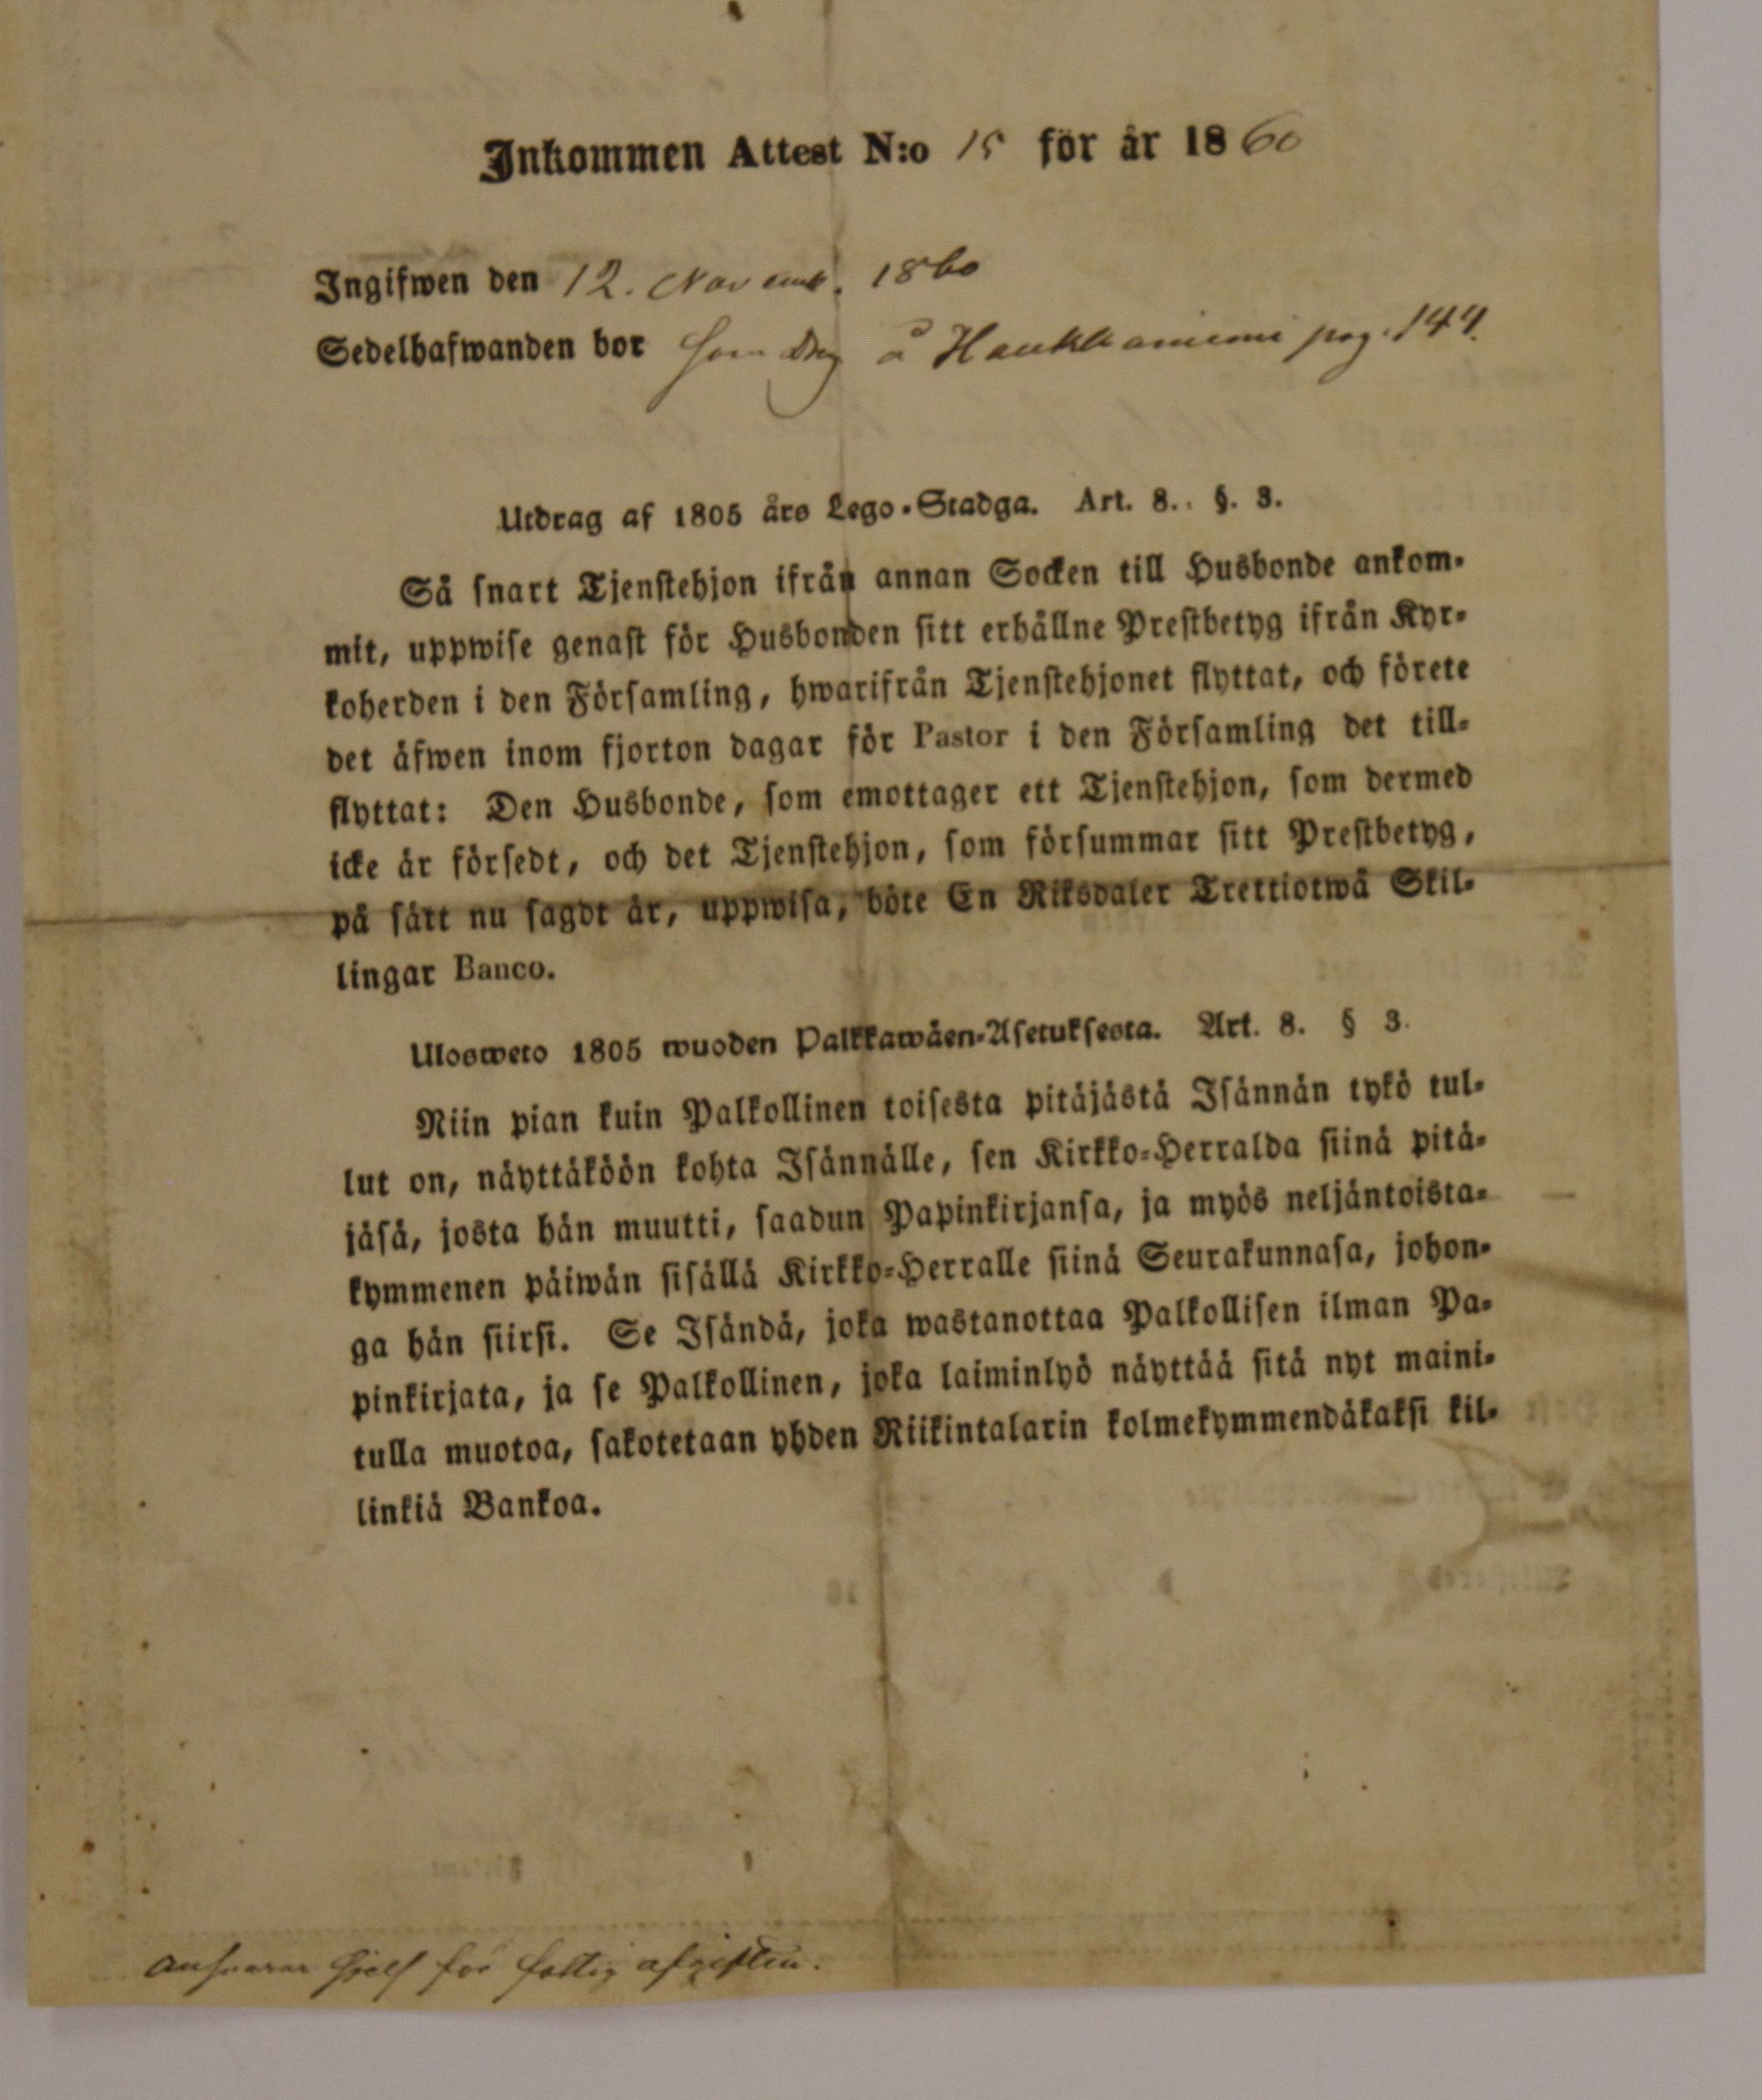 Inkommen Attest N:o 15 för år 1860
Ingifwen den 12. Novemb. 1860
Sedelhafwanden bor som Drg å Haukkaniemi pag. 144.
Utdrag af 1805 års Lego-Stadga. Art. 8. §. 3.
Så snart Tjenstehjon ifrån annan Socken till Husbonde ankom-
mit, uppwise genast för Husbonden sitt erhållne Prestbetyg ifrån Kyr-
koherden i den Församling, hwarifrån Tjenstehjonet flyttat, och förete
det äfwen inom fjorton dagar för Pastor i den Församling det till-
flyttat: Den Husbonde, som emottager ett Tjenstehjon, som dermed
icke är försedt, och det Tjenstehjon, som försummar sitt Prestbetyg,
på sätt nu sagdt är, uppwisa, böte En Riksdaler Trettiotwå Skil-
lingar Banco.
Ulosweto 1805 wuoden Palkkawäen-Asetuksesta. Art. 8. § 3.
Niin pian kuin Palkollinen toisesta pitäjästä Isännän tykö tul-
lut on, näyttäköön kohta Isännälle, sen Kirkko-Herralda siinä pitä-
jäsä, josta hän muutti, saadun Papinkirjansa, ja myös neljäntoista-
kymmenen päiwän sisällä Kirkko-Herralle siinä Seurakunnasa, johon-
ga hän siirsi. Se Isändä, joka wastanottaa Palkollisen ilman Pa-
pinkirjata, ja se Palkollinen, joka laiminlyö näyttää sitä nyt maini-
tulla muotoa, sakotetaan yhden Riikintalarin kolmekymmendäkaksi kil-
linkiä Bankoa.
Answarar sjelf för fattig afgiften.